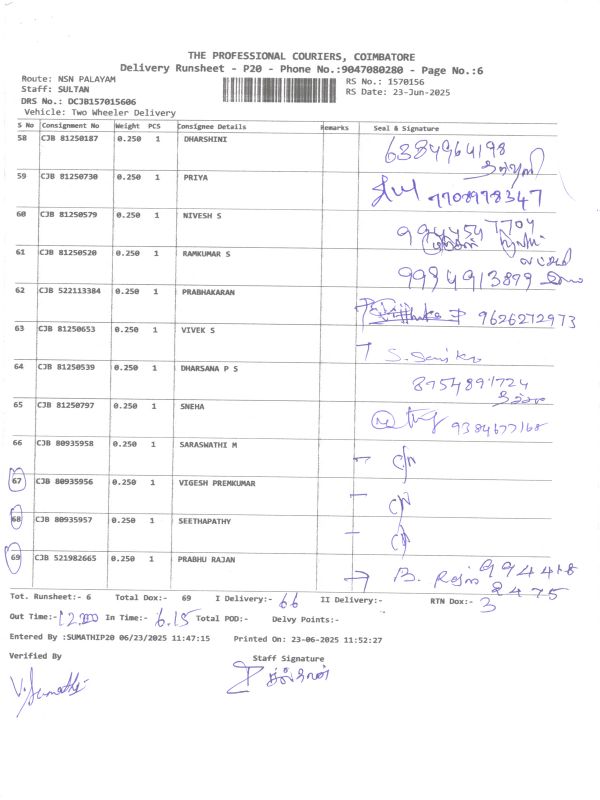 THE PROFESSIONAL COURIERS, COIMBATORE
Delivery Runsheet - P20 - Phone No.:9047080280 - Page No.:6
Route: NSN PALAYAM RS No.: 1570156
Staff: SULTAN RS Date: 23-Jun-2025
DRS No.: DCJB157015606
Vehicle: Two Wheeler Delivery
S No Consignment No Weight PCS Consignee Details Remarks Seal & Signature
58 CJB 81250187 0.250 1 DHARSHINI 6384964198
59 CJB 81250730 0.250 1 PRIYA 7708978347
60 CJB 81250579 0.250 1 NIVESH S
61 CJB 81250520 0.250 1 RAMKUMAR S 9994913899
62 CJB 522113384 0.250 1 PRABHAKARAN 9626272973
63 CJB 81250653 0.250 1 VIVEK S
64 CJB 81250539 0.250 1 DHARSANA P S 8754891724
65 CJB 81250797 0.250 1 SNEHA 9384677168
66 CJB 80935958 0.250 1 SARASWATHI M
67 CJB 80935956 0.250 1 VIGESH PREMKUMAR
68 CJB 80935957 0.250 1 SEETHAPATHY
69 CJB 521982665 0.250 1 PRABHU RAJAN B.
Tot. Runsheet:- 6 Total Dox:- 69 I Delivery:- 66 II Delivery:- RTN Dox:- 3
Out Time:- In Time:- 6.15 Total POD:- Delvy Points:-
Entered By :SUMATHIP20 06/23/2025 11:47:15 Printed On: 23-06-2025 11:52:27
Verified By Staff Signature